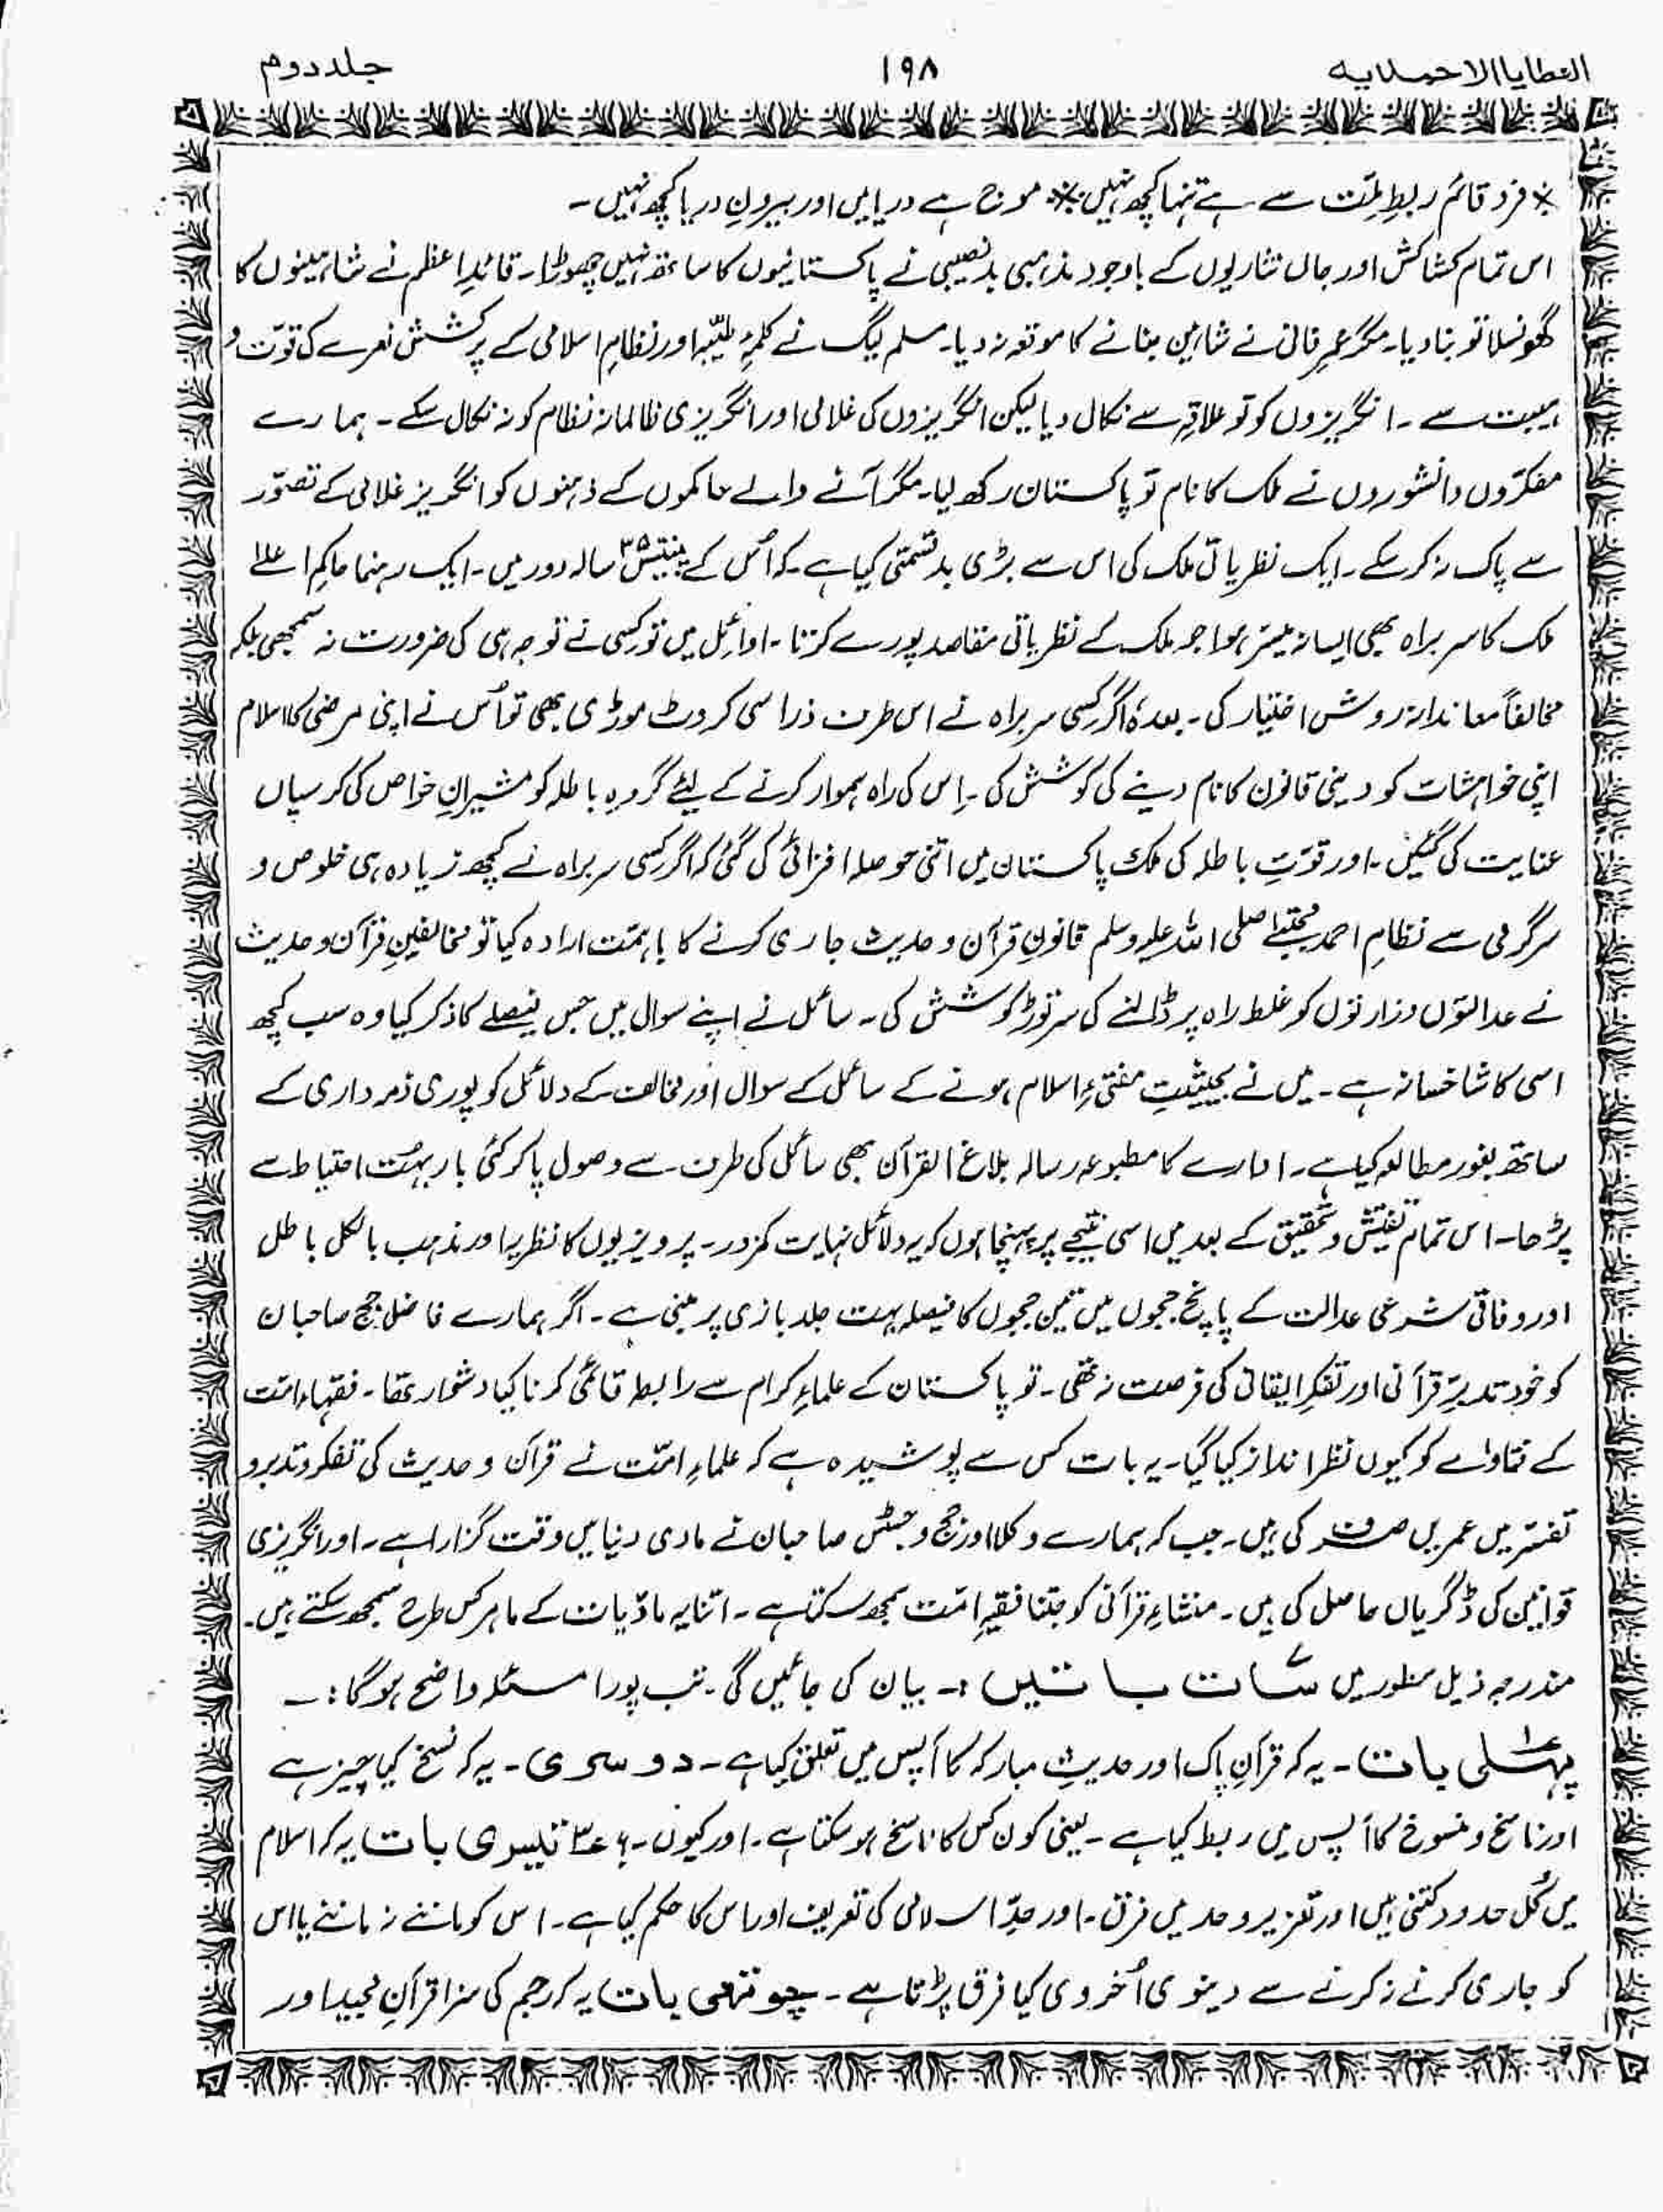 العطایا الاحمدیہ ۱۹۸ جلد دوم
※ فرد قائم ربطِ ملّت سے ہے تنہا کچھ نہیں ※ موج ہے دریا میں اور بیرونِ دریا کچھ نہیں ۔
اس تمام کشاکش اور جاں نثاریوں کے باوجود مذہبی بدنصیبی نے پاکستانیوں کا ساتھ نہیں چھوڑا ۔ قائدِ اعظم نے شاہینوں کا
گھونسلا تو بنا دیا ۔ مگر عمرِ فانی نے شاہین بنانے کا موقعہ نہ دیا ۔ مسلم لیگ نے کلمۂِ طیّبہ اور نظامِ اسلامی کے پرکشش نعرے کی قوّت و
ہیبت سے ۔ انگریزوں کو تو علاقہ سے نکال دیا لیکن انگریزوں کی غلامی اور انگریزی ظالمانہ نظام کو نہ نکال سکے ۔ ہمارے
مفکرّوں دانشوروں نے ملک کا نام تو پاکستان رکھ لیا ۔ مگر آنے والے حاکموں کے ذہنوں کو انگریز غلامی کے تصوّر
سے پاک نہ کر سکے ۔ ایک نظریاتی ملک کی اس سے بڑی بدقسمتی کیا ہے ۔ کہ اُس کے پینتیس ۳۵ سالہ دور میں ۔ ایک رہنما حاکمِ اعلےٰ
ملک کا سربراہ بھی ایسا نہ میسّر ہوا جو ملک کے نظریاتی مقاصد پورے کرتا ۔ اوائل میں تو کسی نے توجہ ہی کی ضرورت نہ سمجھی بلکہ
مخالفاً معاندانہ روش اختیار کی ۔ بعدہٗ اگر کسی سربراہ نے اس طرف ذرا سی کروٹ موڑی بھی تو اُس نے اپنی مرضی کا اسلام
اپنی خواہشات کو دینی قانون کا نام دینے کی کوشش کی ۔ اِس کی راہ ہموار کرنے کے لیئے گروہِ باطلہ کو مشیرانِ خواص کی کرسیاں
عنایت کی گئیں ۔ اور قوّتِ باطلہ کی ملک پاکستان میں اتنی حوصلہ افزائی کی گئی کہ اگر کسی سربراہ نے کچھ زیادہ ہی خلوص و
سرگرمی سے نظامِ احمد مجتبےٰ صلی اللہ علیہ وسلم قانونِ قرآن و حدیث جاری کرنے کا باہمّت ارادہ کیا تو مخالفینِ قرآن و حدیث
نے عدالتوں وزارتوں کو غلط راہ پر ڈالنے کی سرتوڑ کوشش کی ۔ سائل نے اپنے سوال میں جس فیصلے کا ذکر کیا وہ سب کچھ
اسی کا شاخسانہ ہے ۔ میں نے بحیثیتِ مفتیءِ اسلام ہونے کے سائل کے سوال اور مخالف کے دلائل کو پوری ذمہ داری کے
ساتھ بغور مطالعہ کیا ہے ۔ ادارے کا مطبوعہ رسالہ بلاغ القرآن بھی سائل کی طرف سے وصول پا کر کئی بار بہُت احتیاط سے
پڑھا ۔ اس تمام تفتیش و تحقیق کے بعد میں اسی نتیجے پر پہنچا ہوں کہ یہ دلائل نہایت کمزور ۔ پرویزیوں کا نظریہ اور مذہب بالکل باطل
اور وفاقی شرعی عدالت کے پانچ ججوں میں تین ججوں کا فیصلہ بہت جلد بازی پر مبنی ہے ۔ اگر ہمارے فاضل جج صاحبان
کو خود تدبرِّ قرآنی اور تفکرِ ایقانی کی فرصت نہ تھی ۔ تو پاکستان کے علماءِ کرام سے رابطہ قائم کرنا کیا دشوار تھا ۔ فقہاءِ امّت
کے فتاوٰے کو کیوں نظر انداز کیا گیا ۔ یہ بات کس سے پوشیدہ ہے کہ علماءِ امّت نے قرآن و حدیث کی تفکر و تدبر و
تفسّر میں عمریں صرف کی ہیں ۔ جب کہ ہمارے وکلا اور جج و جسٹس صاحبان نے مادی دنیا میں وقت گزارا ہے ۔ اور انگریزی
قوانین کی ڈگریاں حاصل کی ہیں ۔ منشاءِ قرآنی کو جتنا فقیہِ امّت سمجھ سکتا ہے ۔ اتنا یہ مادّیات کے ماہر کس طرح سمجھ سکتے ہیں ۔
مندرجہ ذیل سطور میں سات باتیں :۔ بیان کی جائیں گی ۔ تب پورا مسئلہ واضح ہوگا :۔
پہلی بات ۔ یہ کہ قرآنِ پاک اور حدیثِ مبارکہ کا آپس میں تعلق کیا ہے ۔ دوسری ۔ یہ کہ نسخ کیا چیز ہے
اور ناسخ و منسوخ کا آپس میں ربط کیا ہے ۔ یعنی کون کس کا ناسخ ہو سکتا ہے ۔ اور کیوں ۔؟ ۳ تیسری بات یہ کہ اسلام
میں کُل حدود کتنی ہیں اور تعزیر و حد میں فرق ۔ اور حدِّ اسلامی کی تعریف اور اس کا حکم کیا ہے ۔ اس کو ماننے نہ ماننے یا اس
کو جاری کرنے نہ کرنے سے دینوی اُخروی کیا فرق پڑتا ہے ۔ چوتھی بات یہ کہ رجم کی سزا قرآنِ مجید اور